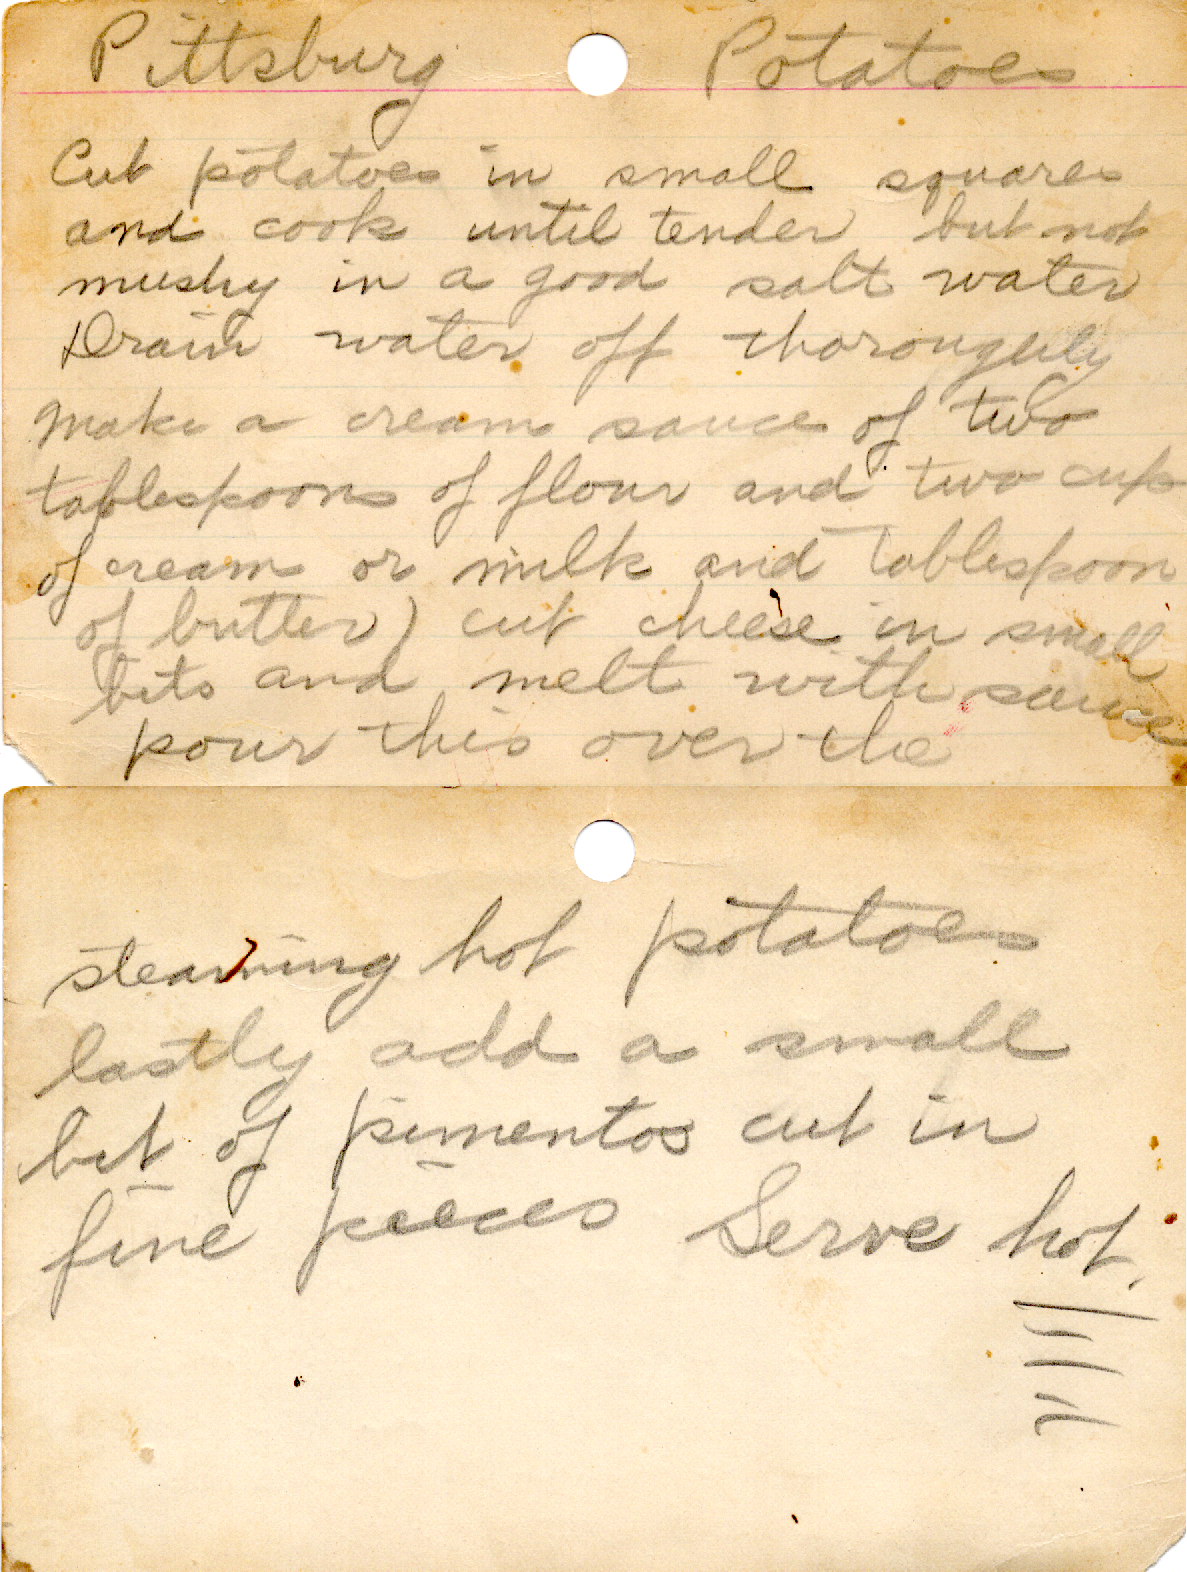 Pittsburg Potatoes
Cut potatoes in small squares
and cook until tender but not
mushy in a good salt water
Drain water off thoroughly
Make a cream sauce of two
tablespoons of flour and two cups
of cream or milk and tablespoon
of butter) cut cheese in small
bits and melt with sauce
pour this over the
steaming hot potatoes
lastly add a small
bit of pimentos cut in
fine pieces Serve hot.